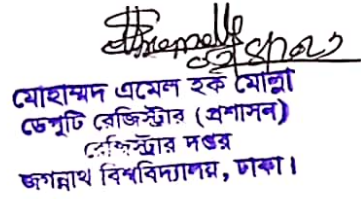 মোহাম্মদ এমেল হক মোল্লা
ডেপুটি রেজিস্ট্রার (প্রশাসন)
রেজিস্ট্রার দপ্তর
জগন্নাথ বিশ্ববিদ্যালয়, ঢাকা।